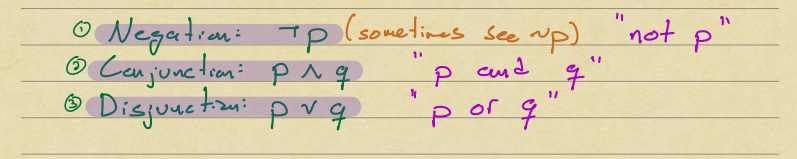 ① Negation: ¬p (sometimes see ~p) "not p"
② Conjunction: p ∧ q "p and q"
③ Disjunction: p ∨ q "p or q"